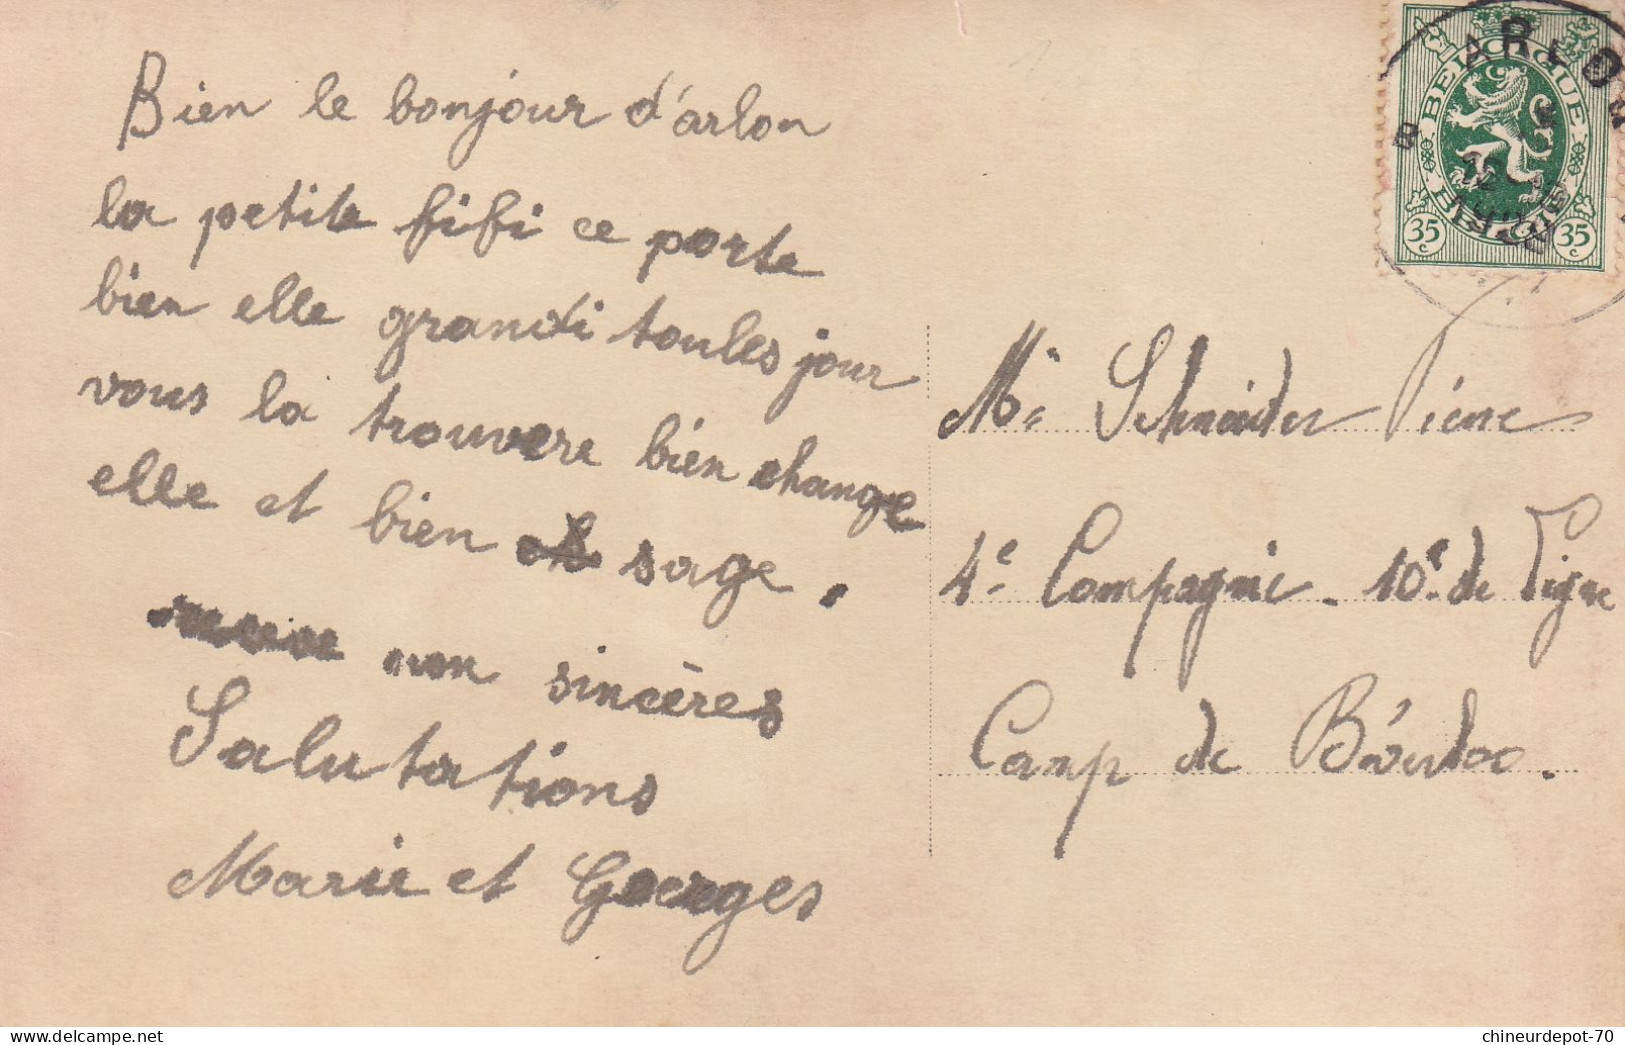 Bien le bonjour d'arlon
la petite fifi ce porte
bien elle grandi toules jour
vous la trouvere bien change
elle et bien sage.
non sincères
Salutations
Marie et Goerges
Mr Schneider Pierre
4e Compagnie - 10e de Ligne
Camp de
ARLON
BELGIQUE
BELGIË
35c 35c
B
12
chineurdepot-70